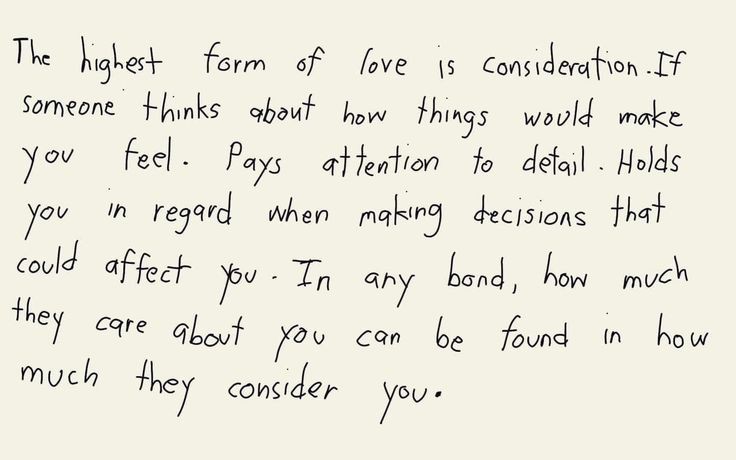 The highest form of love is consideration. If
someone thinks about how things would make
you feel. Pays attention to detail. Holds
you in regard when making decisions that
could affect you. In any bond, how much
they care about you can be found in how
much they consider you.